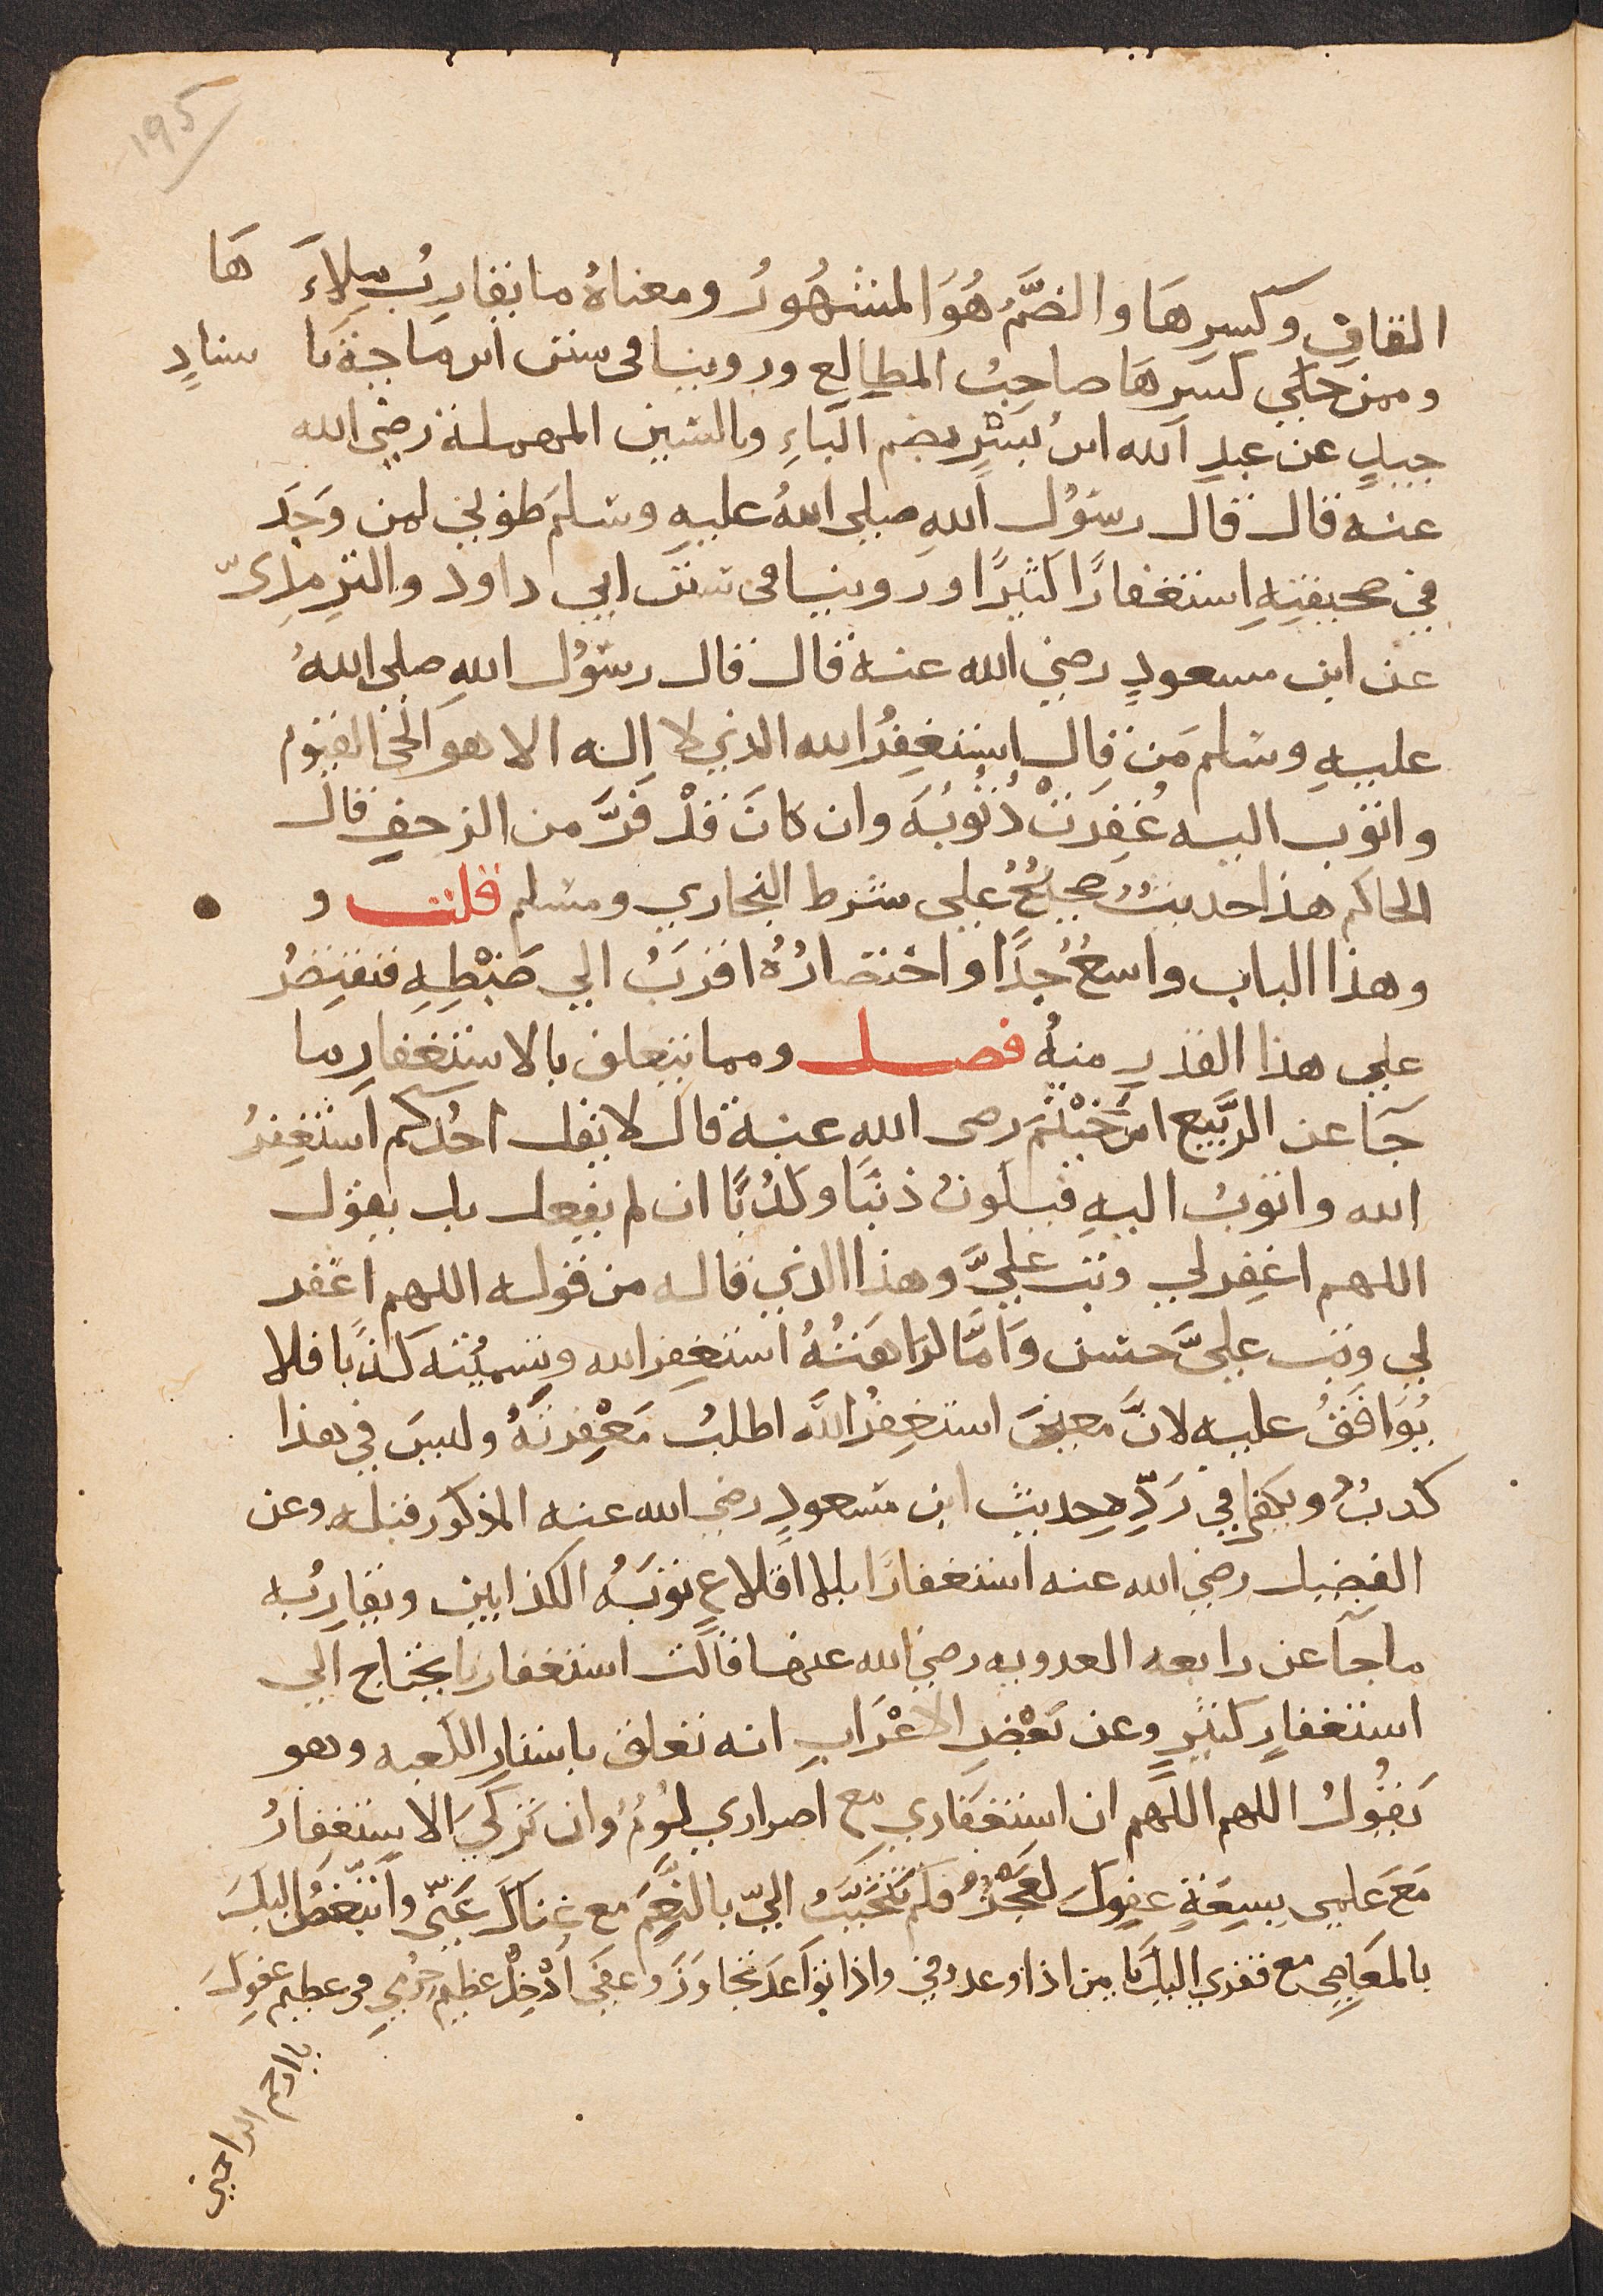 195
القافِ وكسرِهَا والضَّمُ هُوَ المشهُورُ ومعناهُ ما يقاربُ ملاءَ هَا
وممن حكي كسرهَا صاحبُ المطالِع وروينا فى سنن ابن ماجةَ با سنادٍ
جيدٍ عن عبدِ الله ابنُ بسْرٍ بضم الباءِ وبالسّين المهملة رضي الله
عنه قال قال رسوُل اللهِ صلى اللهُ عليهِ وسلمَ طوبي لمن وَجَدَ
في صحيفتِهِ استغفارًا كثيرًا وروينا فى سنن ابي داود والترمذىّ
عن ابن مسعودٍ رضي الله عنه قال قال رسوُل اللهِ صلى اللهُ
عليهِ وسلم مَن قال استغفِرُ الله الذي لا اِله الا هو الحي القيوم
واتوب اليه غُفِرَتْ ذُنُوبُهَ وان كانَ قَدْ فَرَّ من الزحفِ قال
الحاكم هذا حديثُ صحيحُ على شرط البخاري ومسلم قلت و
وهذا الباب واسعُ جِدًا واختصارُهُ اقربُ الي ضَبْطِهِ فنقتصرُ
علي هذا القدرِ منهُ فصل ومما يتعلق بالاستغفارِ ما
جَآ عن الرَّبيع ابن خَيْثَم رضى الله عنه قال لا يقل احدُكم استغفِرُ
الله واتوبُ اليهِ فيكونُ ذنبًا وكذبًا ان لم يفعل بل يقول
اللهم اغفِر لي وتب عليَّ وهذا الذي قاله من قوله اللهم اغفر
لي وتب عليَّ حسن وَامَّا كراهَتُهُ استغفِر الله وتسميتُه كذبًا فلا
يُوَافَقُ عليه لانَّ معنيَ استغفِرُ اللهَ اطلبُ مَغْفِرتَهُ وليسَ في هذا
كدبُ ويكفى في رَدِّهِ حديث ابن مسعودٍ رضي الله عنه المذكور قبله وعن
الفضيل رضي الله عنه استغفارًا بلا اقلاعٍ توبَةُ الكذابين وتقاربُه
ما جآ عن رابعه العدويه رضي الله عنها قالت استغفارنا يحتاج الي
استغفارٍ كثيرٍ وعن بَعْضِ الاعْرَابِ انه تعلق باستار الكعبه وهو
يَقُولُ اللهم اللهم ان استغفاري مع اصراري لوُمُ وان تركي الاستغفارُ
مَعَ علمي بسِعَةِ عفوِكَ لعَجْزُ فكم تَتَحَبَّبُ اليّ بالنِّعَم مع غناكَ عَنّى واَتَبّغضُ اليكَ
بالمعَاصِى مع فقري اليكَ يا من اذا وعد وفي واذا توَاعَدَ تجاوَزَ وعفى اَدْخِلْ عظيم جُرمِي فى عظيم عفوِكَ
يا ارحم الراحمين